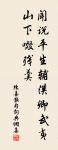 聞說平生輔漢卿武夷
山下啜殘羹